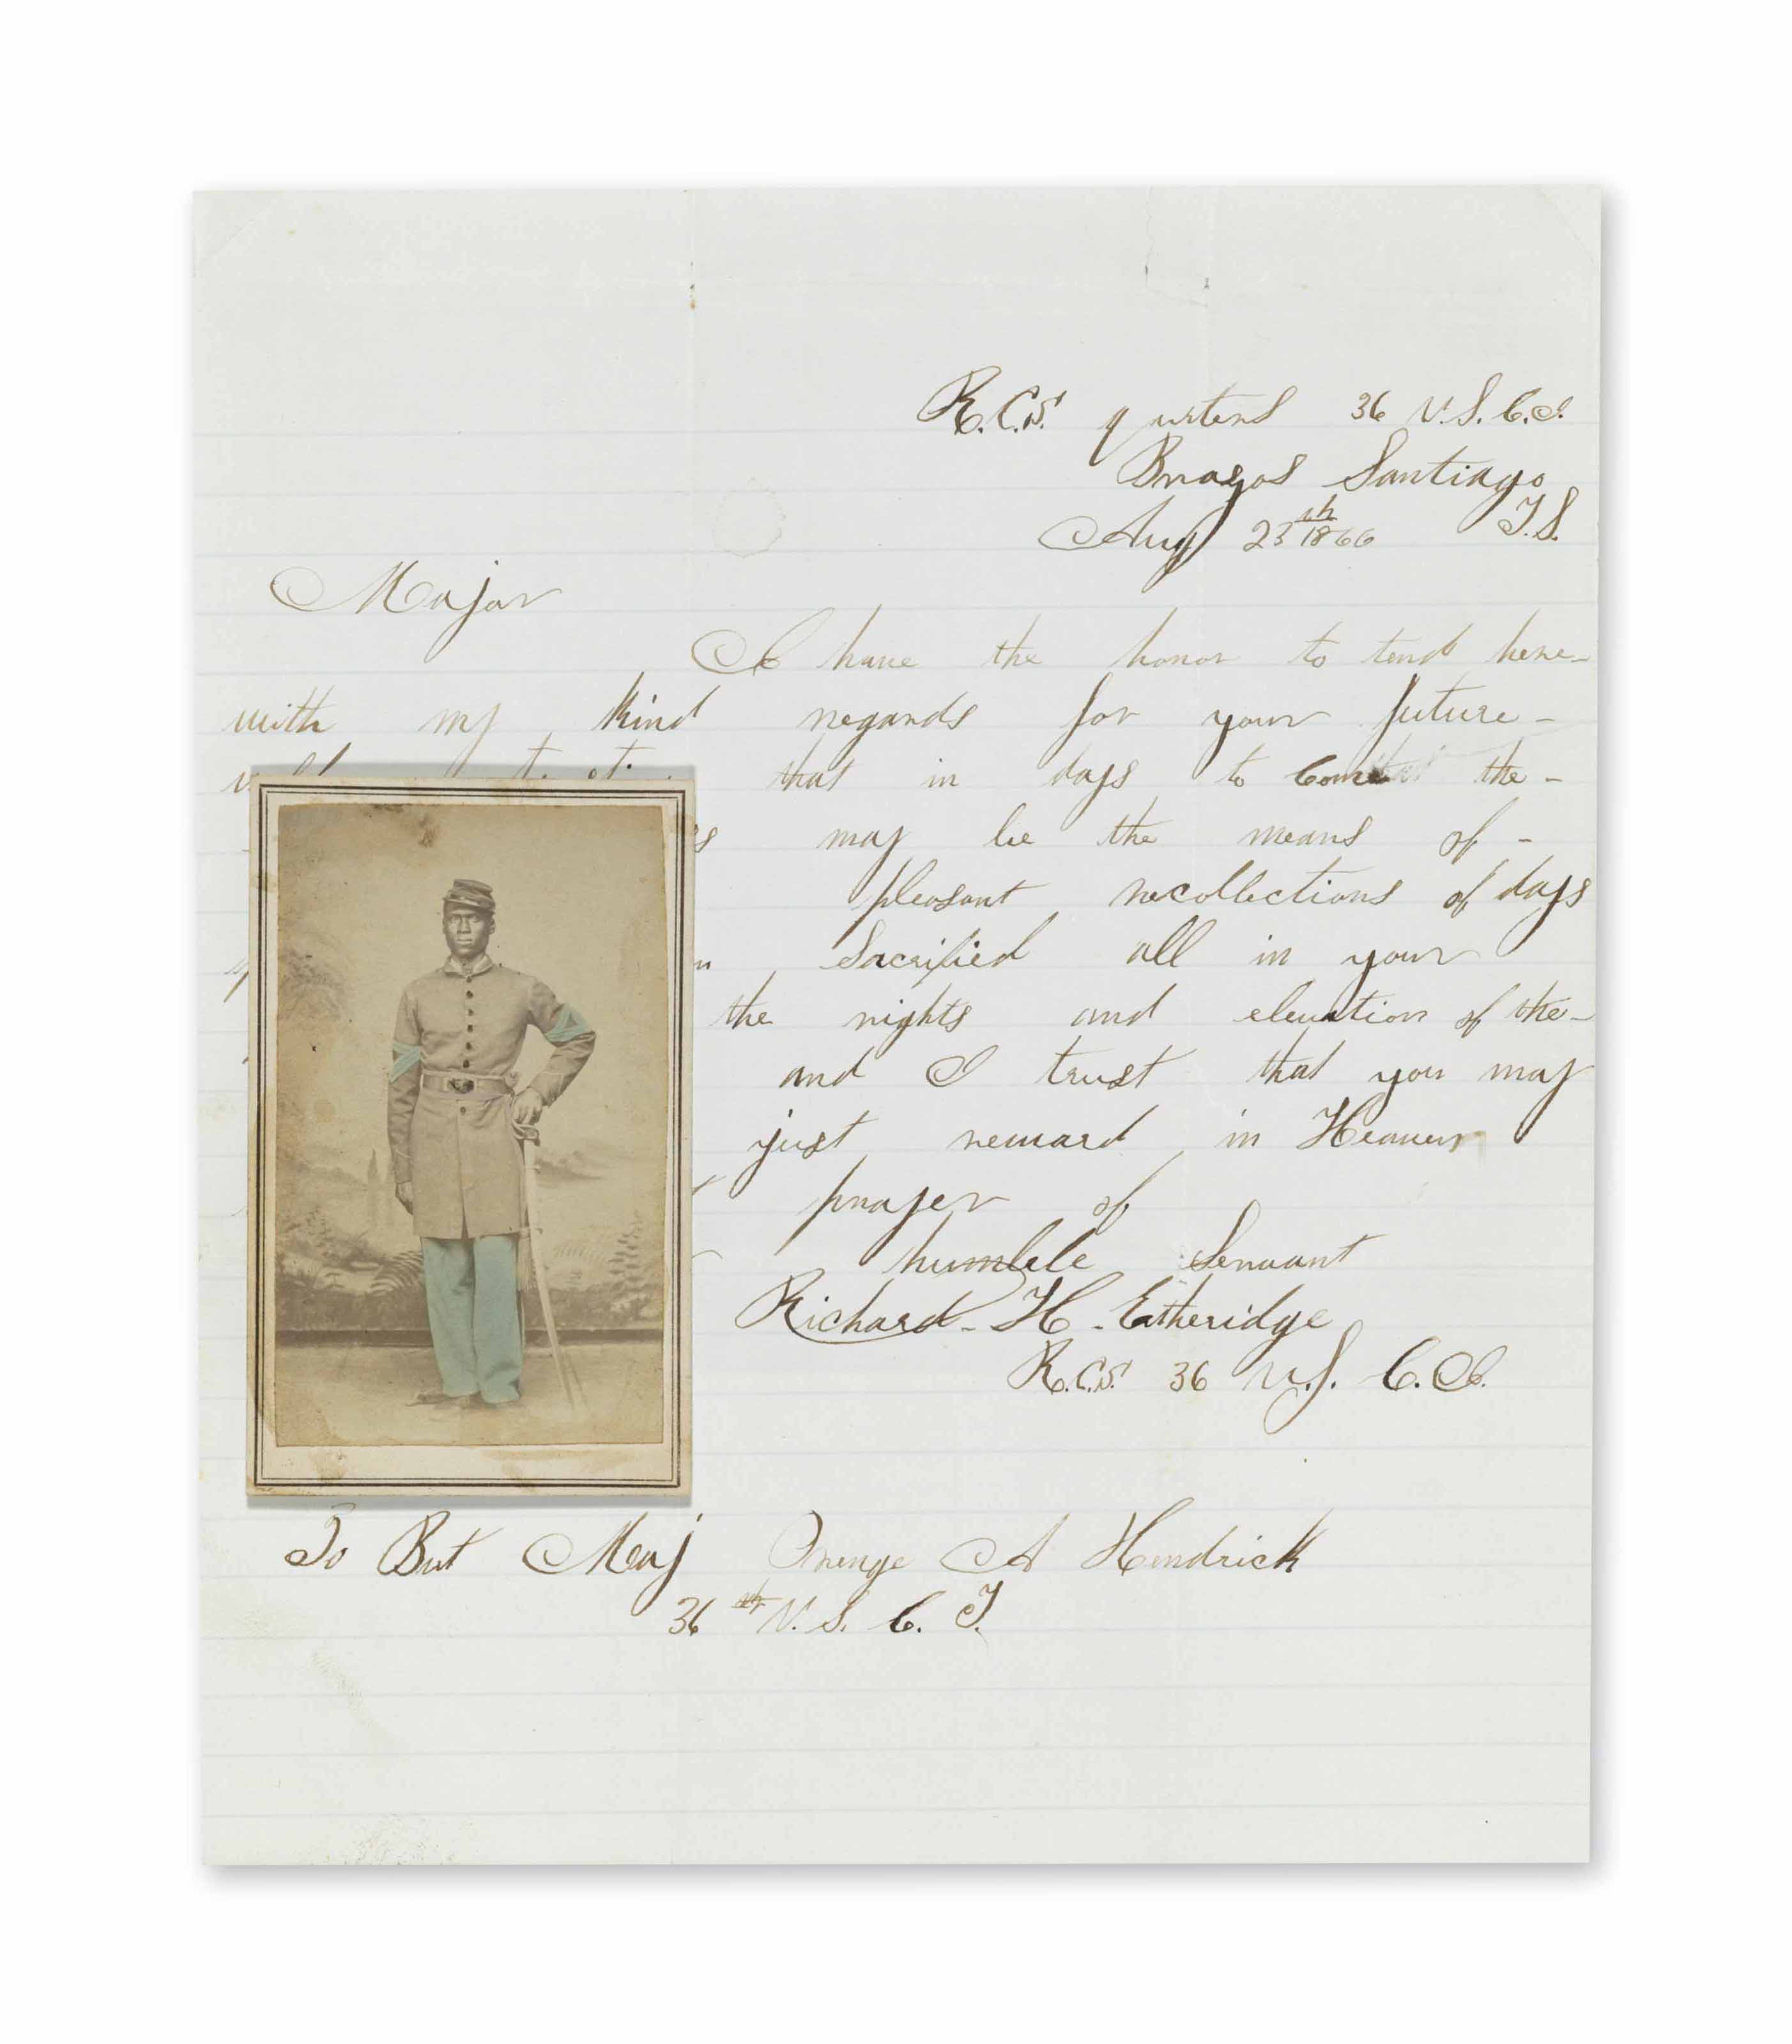 R.C.S. qurters 36 U.S.C.I.
Brazos Santiago
Aug 23th 1866 T.S.
Major
I have the honor to tend here-
with my kind regards for your future-
that in days to Come the-
may be the means of-
pleasant recollections of days
Sacrified all in your
the rights and elevation of the-
and I trust that you may
just reward in Heaven
prayer of
humble Servant
Richard-H-Etheridge
R.C.S. 36 U.S. C.I.
To Bvt Maj Orange A Hendrick
36th U.S. C. T.